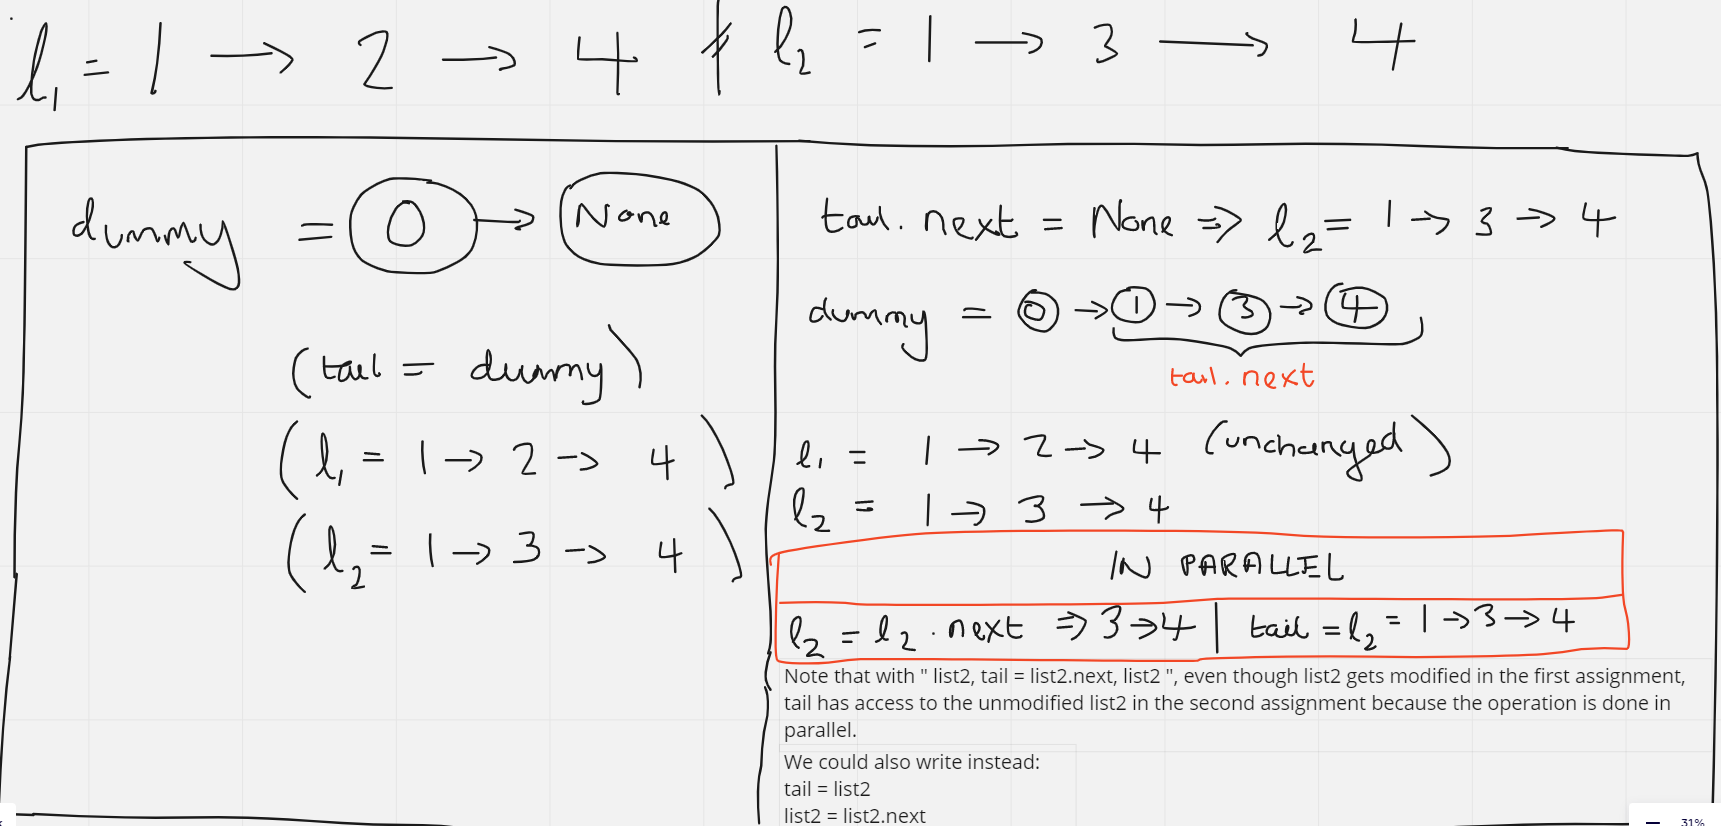 l₁ = 1 → 2 → 4 # l₂ = 1 → 3 → 4
dummy = 0 → None
(tail = dummy)
(l₁ = 1 → 2 → 4)
(l₂ = 1 → 3 → 4)
tail.next = None => l₂ = 1 → 3 → 4
dummy = 0 → 1 → 3 → 4
tail.next
l₁ = 1 → 2 → 4 (unchanged)
l₂ = 1 → 3 → 4
IN PARALLEL
l₂ = l₂.next => 3 → 4 | tail = l₂ = 1 → 3 → 4
Note that with " list2, tail = list2.next, list2 ", even though list2 gets modified in the first assignment,
tail has access to the unmodified list2 in the second assignment because the operation is done in
parallel.
We could also write instead:
tail = list2
list2 = list2.next
31%